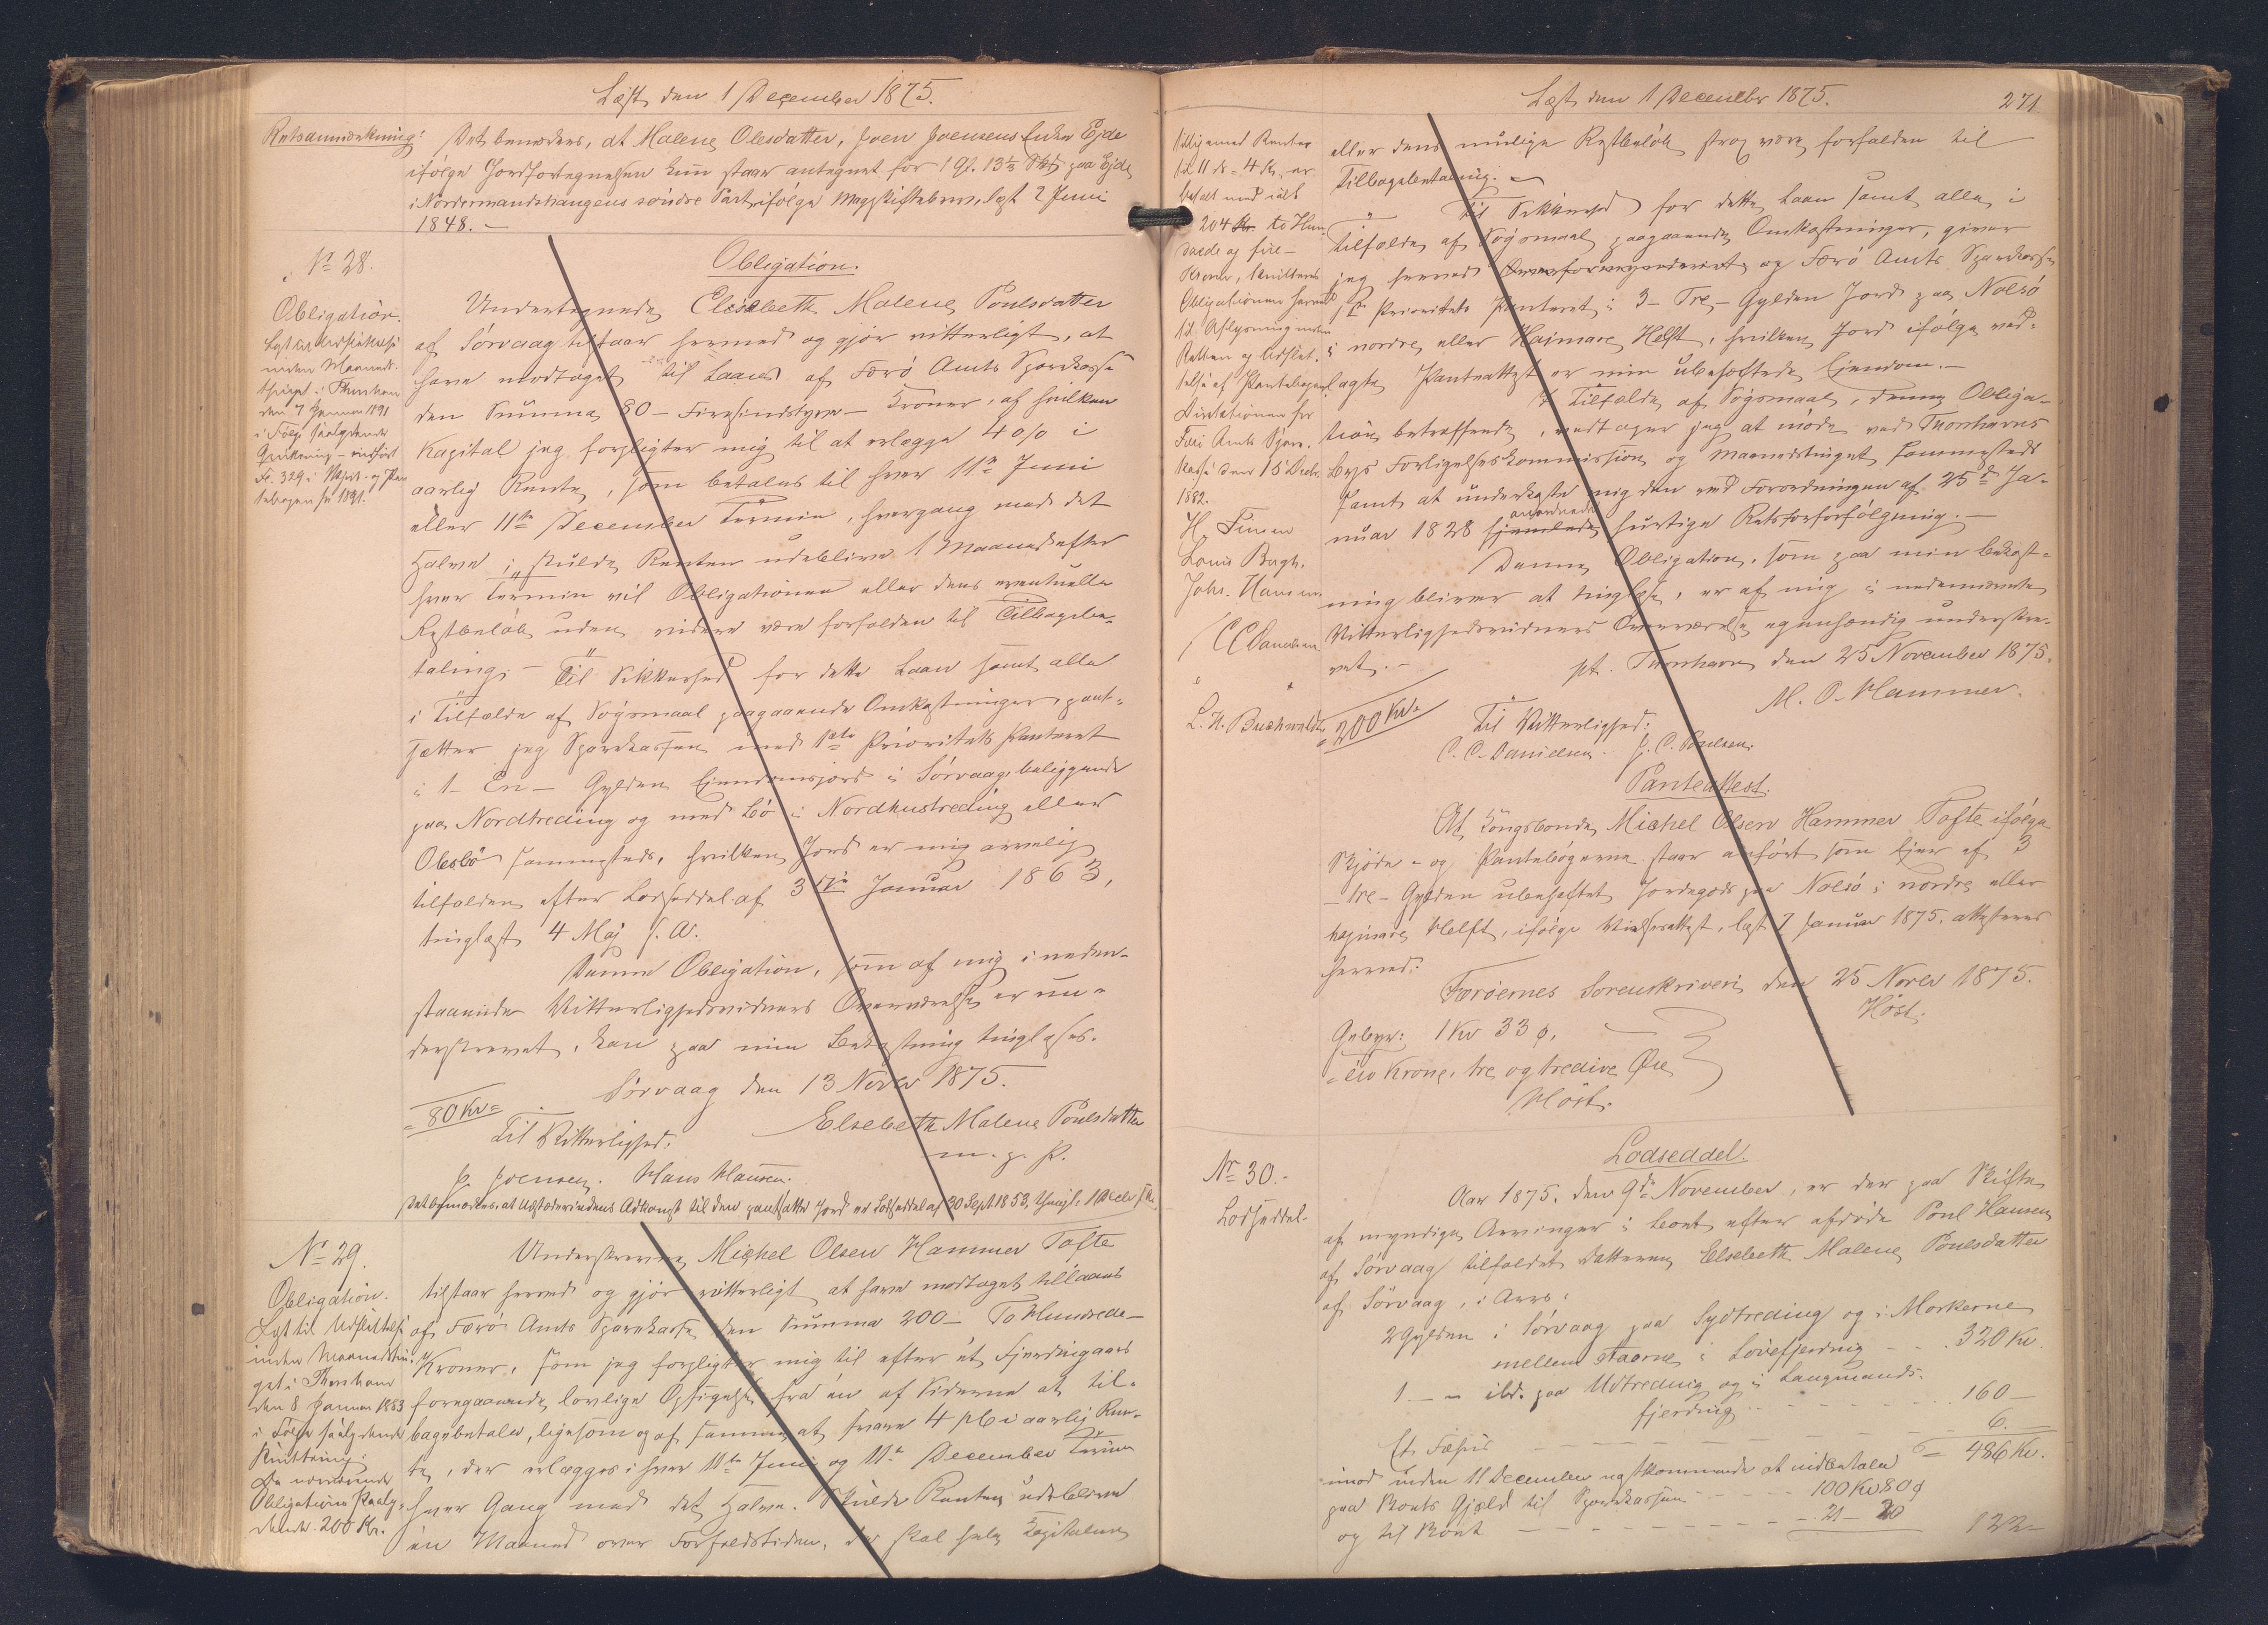 Læst den 1 December 1875.
Retsanmærkning: Det bemærkes, at Malene Olesdatter, Joen Joensens Enke Ejde
ifølge Jordfortegnelsen kun staar antegnet for 1 Gl. 13 1/3 Skd paa Ejde
i Nordermandshaugens søndre Part ifølge Mageskiftebrev, læst 2 Juni
1848. -
Nr 28.
Obligation.
Lyst til Udslettelse
inden Maaneds-
thinget i Thorshavn
den 7 Januar 1891
i Følge saalydende
Qvittering - indført
Fo. 329 i Skjøde- og Pan
tebogen for 1891.
Obligation.
Undertegnede Elisabeth Malene Poulsdatter
af Sørvaag tilstaar hermed og gjør vitterligt, at
have modtaget til Laans af Færø Amts Sparekasse
den Summa 80 - Firesindstyve - Kroner, af hvilken
Kapital jeg forpligter mig til at erlægge 4 o/o i
aarlig Rente, som betales til hver 11te Juni
eller 11te December Termin, hvergang med det
Halve i, skulde Renten udeblive 1 Maaned efter
hver Termin vil Obligationen eller dens eventuelle
Restbeløb uden videre være forfalden til Tilbagebe-
taling. - Til Sikkerhed for dette Laan samt alle
i Tilfælde af Søgsmaal paagaaende Omkostninger, pant-
sætter jeg Sparekassen med 1ste Prioritets Panteret
i 1 - En - Gylden Ejendomsjord i Sørvaag, beliggende
paa Nordtreding og med Bø i Nordhustreding eller
Olesbø sammesteds, hvilken Jord er mig arvelig
tilfalden efter Lodseddel af 31te Januar 1863,
tinglæst 4 Maj s. A.
Denne Obligation, som af mig i neden-
staaende Vitterlighedsvidners Overværelse er un-
derskrevet, kan paa min Bekostning tinglæses.
Sørvaag den 13 Novbr 1875.
= 80 Kr =
Elsebeth Malene Poulsdatter
m. p. P.
Til Vitterlighed:
P. Joensen. Hans Hansen.
Det bemærkes, at Udstederindens Adkomst til den pantsatte Jord er Lodseddel af 30 Sept 1853, thingl. 1 Decbr
Nr 29.
Obligation.
Lyst til Udslettelse
inden Maanedsthin-
get i Thorshavn
den 8 Januar 1883
i Følge saalydende
Qvittering:
Da nærværende
Obligations Paaly-
dende 200 Kr.
Underskrevne Michel Olsen Hammer Tofte
tilstaar herved og gjør vitterligt at have modtaget tillaans
af Færø Amts Sparekasse den Summa 200 - To Hundrede -
Kroner, som jeg forpligter mig til efter et Fjerdingaars
foregaaende lovlige Opsigelse fra én af Siderne at til-
bagebetale, ligesom og af samme at svare 4 pCt i aarlig Ren-
te, der erlægges i hver 11te Juni og 11te December Termin
hver Gang med det Halve. Skulde Renten udeblive
én Maaned over Forfaldstiden, da skal hele Kapitalen
Læst den 1 December 1875.
271
tilligemed Renter
til 11 ds = 4 Kr., er
betalt med ialt
204 Kr. to Hun-
drede og fire -
Kroner, kvitteres
Obligationen herved
til Aflysning inden
Retten og Udslet-
telse af Pantebogen
Direktionen for
Færø Amts Spare-
kasse den 15 Decbr.
1882.
H. Finsen
Louis Bergh.
Johs. Hansen
C C Danielsen
L. H. Buchwaldt
eller dens mulige Restbeløb strax være forfalden til
Tilbagebetaling. -
Til Sikkerhed for dette Laan samt alle i
Tilfælde af Søgsmaal paagaaende Omkostninger, giver
jeg herved Færø Amts Sparekasse
1te Prioritets Panteret i 3 - Tre - Gylden Jord paa Nolsø
i nordre eller Hajmare Helft, hvilken Jord ifølge ved-
lagte Panteattest er min ubehæftede Ejendom. -
I Tilfælde af Søgsmaal, denne Obliga-
tion betreffende, vedtager jeg at møde ved Thorshavns
Byes Forligelseskommission og Maanedsthinget sammesteds
samt at underkaste mig den ved Forordningen af 25de Ja-
nuar 1828 hjemlede anordnede hurtige Retsforfølgning. -
Denne Obligation, som paa min Bekost-
ning bliver at tinglæse, er af mig i nedennævnte
Vitterlighedsvidners Overværelse egenhændig underskre-
vet. -
pt. Thorshavn den 25 November 1875.
M. O. Hammer.
= 200 Kr =
Til Vitterlighed:
C. C. Danielsen. J. C. Poulsen.
Panteattest.
At Kongsbonde Michel Olsen Hammer Tofte ifølge
Skjøde- og Pantebøgerne staar anført som Ejer af 3
- tre - Gylden ubehæftet Jordegods paa Nolsø i nordre eller
hajmare Helft, ifølge Vielseattest, læst 7 Januar 1875, attesteres
herved:
Færøernes Sorenskriveri den 25 Novbr 1875.
Høst.
Gebyr: 1 Kr 33 ø.
= én Krone, tre og tredive Øre
Høst.
Nr 30.-
Lodseddel.
Lodseddel.
Aar 1875. den 9de November, er der paa Skifte
af myndige Arvinger i Boet efter afdøde Poul Hansen
af Sørvaag tilfaldet Datteren Elsebeth Malene Poulsdatter
af Sørvaag, i Arv:
2 Gylden i Sørvaag paa Sydtreding og i Morkerne
mellem Aaerne i Løvefjerding - - . 320 Kr.
1 - " ibd. paa Udtreding og i Langmands-
fjerding - - - - 160 -
Et Fæhus - - - - 6. -
= 486 Kr.
imod inden 11 December næstkommende at indbetale
paa Boets Gjæld til Sparekassen - - - 100 Kr 80 ø
og til Boet - - - - 21 - 20
122 -